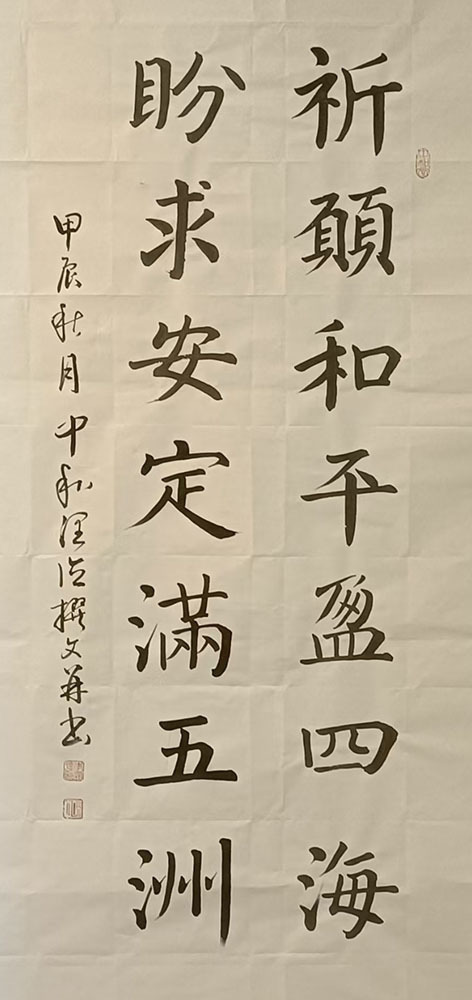 祈願和平盈四海
盼求安定滿五洲
甲辰秋月中和潤德撰文并书